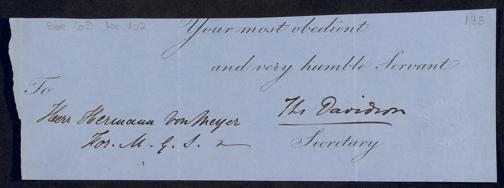 Soe 63 No 102
135
Your most obedient
and very humble Servant
To
Herr Hermann Von Meyer
For. M. G. S. &
Ths Davidson
Secretary